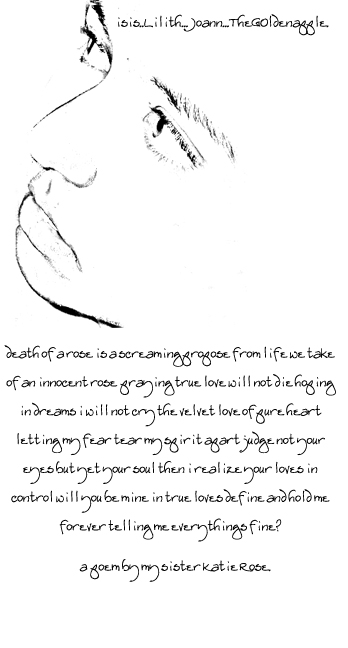 isis...Lilith... Joann...TheGOldenapple.
death of a rose is a screaming propose from life we take
of an innocent rose praying true love will not die hoping
in dreams i will not cry the velvet love of pure heart
letting my fear tear my spirit apart judge not your
eyes but yet your soul then i realize your loves in
control will you be mine in true loves define and hold me
forever telling me everythings fine?
a poem by my sister Katie Rose.